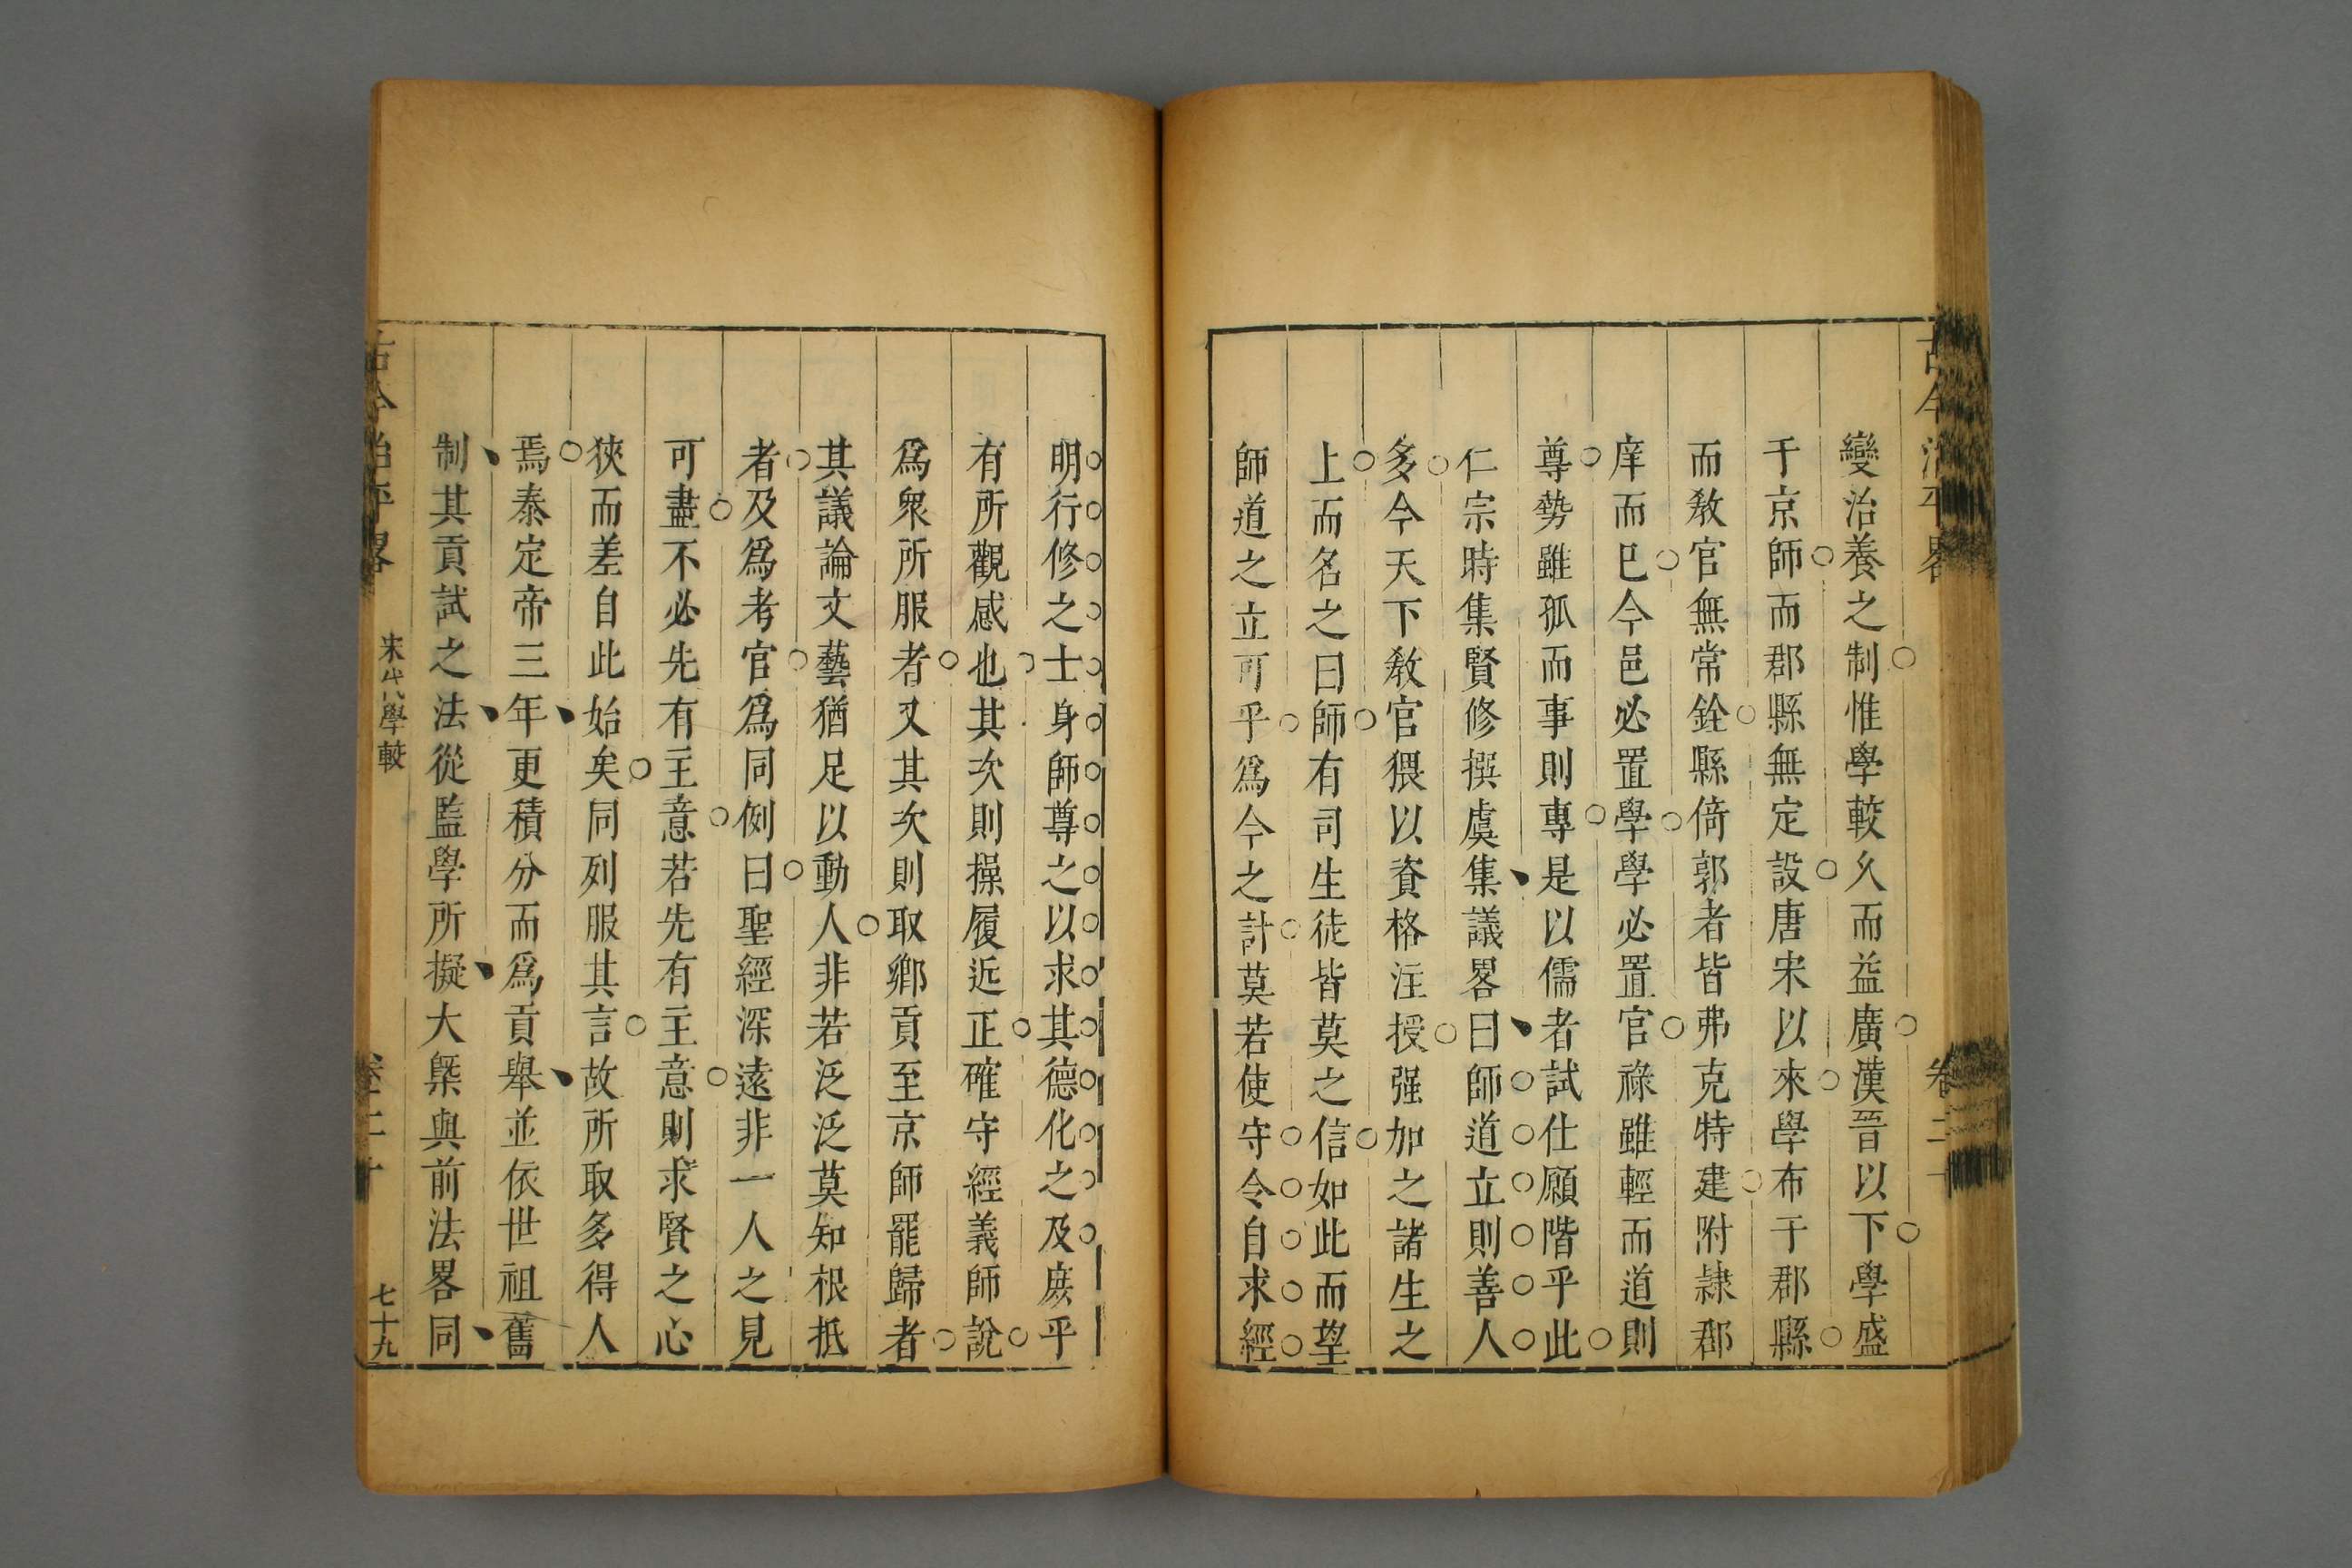 古今治平畧
卷二十
變治養之制惟學較久而益廣漢晉以下學盛
于京師而郡縣無定設唐宋以來學布于郡縣
而敎官無常銓縣倚郭者皆弗克特建附隷郡
庠而巳今邑必置學學必置官祿雖輕而道則
尊勢雖孤而事則專是以儒者試仕願階乎此
仁宗時集賢修撰虞集議畧曰師道立則善人
多今天下敎官猥以資格注授强加之諸生之
上而名之曰師有司生徒皆莫之信如此而望
師道之立可乎爲今之計莫若使守令自求經
明行修之士身師尊之以求其德化之及庶乎
有所觀感也其次則操履近正確守經義師說
爲衆所服者又其次則取鄕貢至京師罷歸者
其議論文藝猶足以動人非若泛泛莫知根抵
者及爲考官爲同例曰聖經深遠非一人之見
可盡不必先有主意若先有主意則求賢之心
狹而差自此始矣同列服其言故所取多得人
焉泰定帝三年更積分而爲貢舉並依世祖舊
制其貢試之法從監學所擬大槩與前法畧同
古今治平畧
末代學較
卷二十
七十九